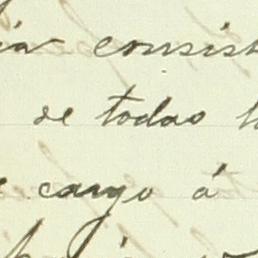 ia consist
de todas l
cargo á